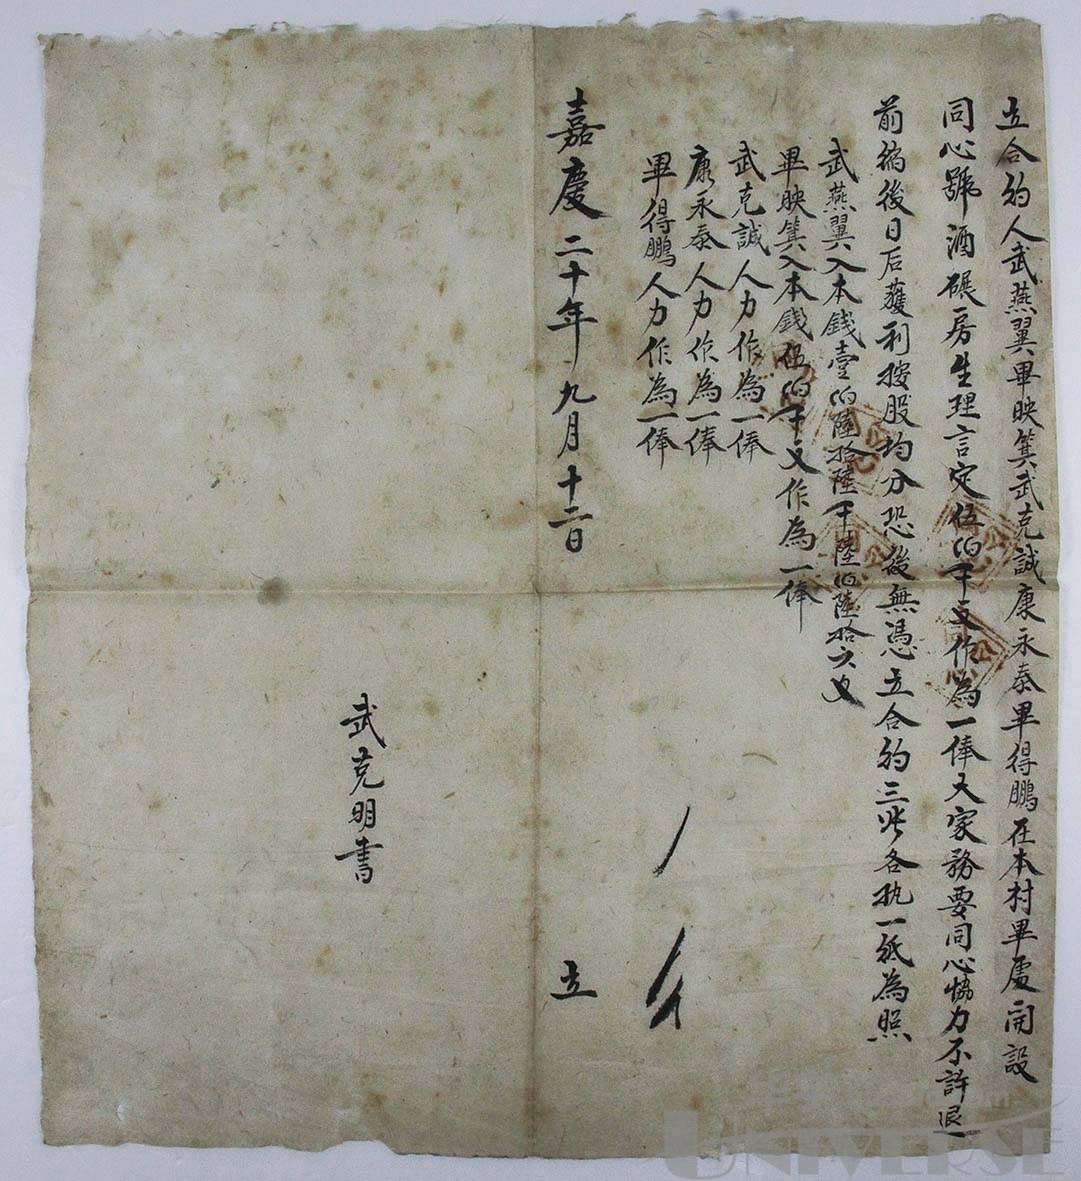 立合約人武燕翼畢映箕武克誠康永泰畢得鵬在本村畢處開設
同心號酒碾房生理言定伍伯千文作為一俸大家務要同心協力不許退
前縮後日后獲利按股均分恐後無憑立合約三帋各执一紙為照
武燕翼入本錢壹伯陸拾陸千陸伯陸拾六文
畢映箕入本錢伍伯千文作為一俸
武克誠人力作為一俸
康永泰人力作為一俸
畢得鵬人力作為一俸
嘉慶二十年九月十二日 立
武克明書
UNIVERSE